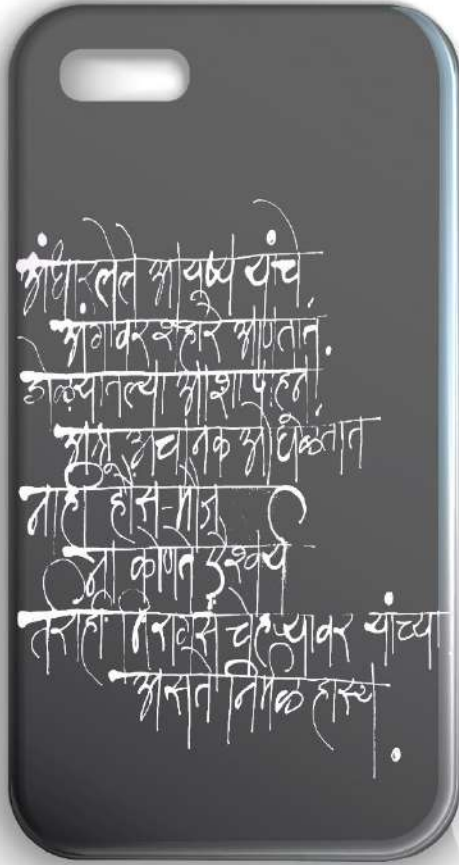 अंधारलेले आयुष्य यांचे
अंगावर शहारे आणतात.
डोळ्यातल्या आशा पाहता
अश्रू अचानक ओघळतात
नाही हौस-मौज
ना कोणते ऐश्वर्य
तरीही निरागस चेहऱ्यावर यांच्या
असते निर्मळ हास्य.